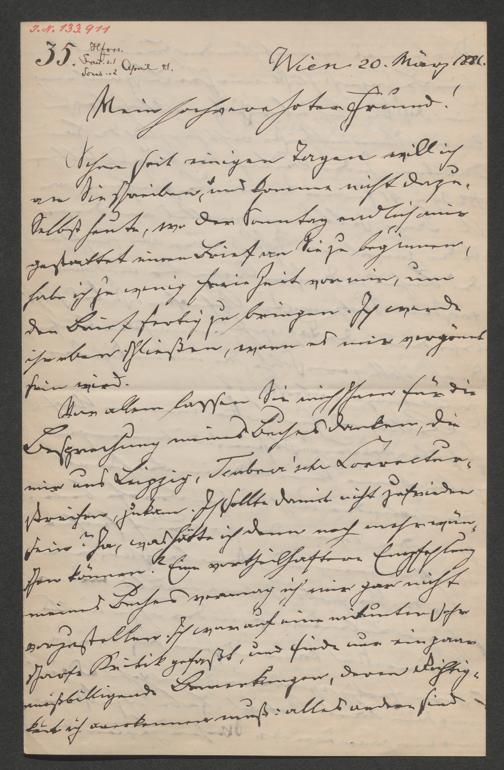 J. N. 133.911
35.
April 81.
Wien 20. März 1881.
Mein hochverehrter Freund!
Schon seit einigen Tagen will ich
an Sie schreiben, und komme nicht dazu.
Selbst heute, wo der Sonntag endlich mir
gestattet einen Brief an Sie zu beginnen,
habe ich zu wenig freie Zeit vor mir, um
den Brief fertig zu bringen. Ich werde
ihn eben schließen, wann es mir vergönnt
sein wird.
Vor allem lassen Sie mich Ihnen für die
Besprechung meines Buches danken, die
mir aus Leipzig, Teubner'sche Correctur-
streifen, zukam. Ich sollte damit nicht zufrieden
sein? Ja, was hätte ich denn noch mehr wün-
schen können? Eine vortheilhaftere Empfehlung
meines Buches vermag ich mir gar nicht
vorzustellen. Ich war auf eine mitunter sehr
scharfe Kritik gefaßt, und finde nur ein paar
mißbilligende Bemerkungen, deren Richtig-
keit ich anerkennen muß: alles andere sind